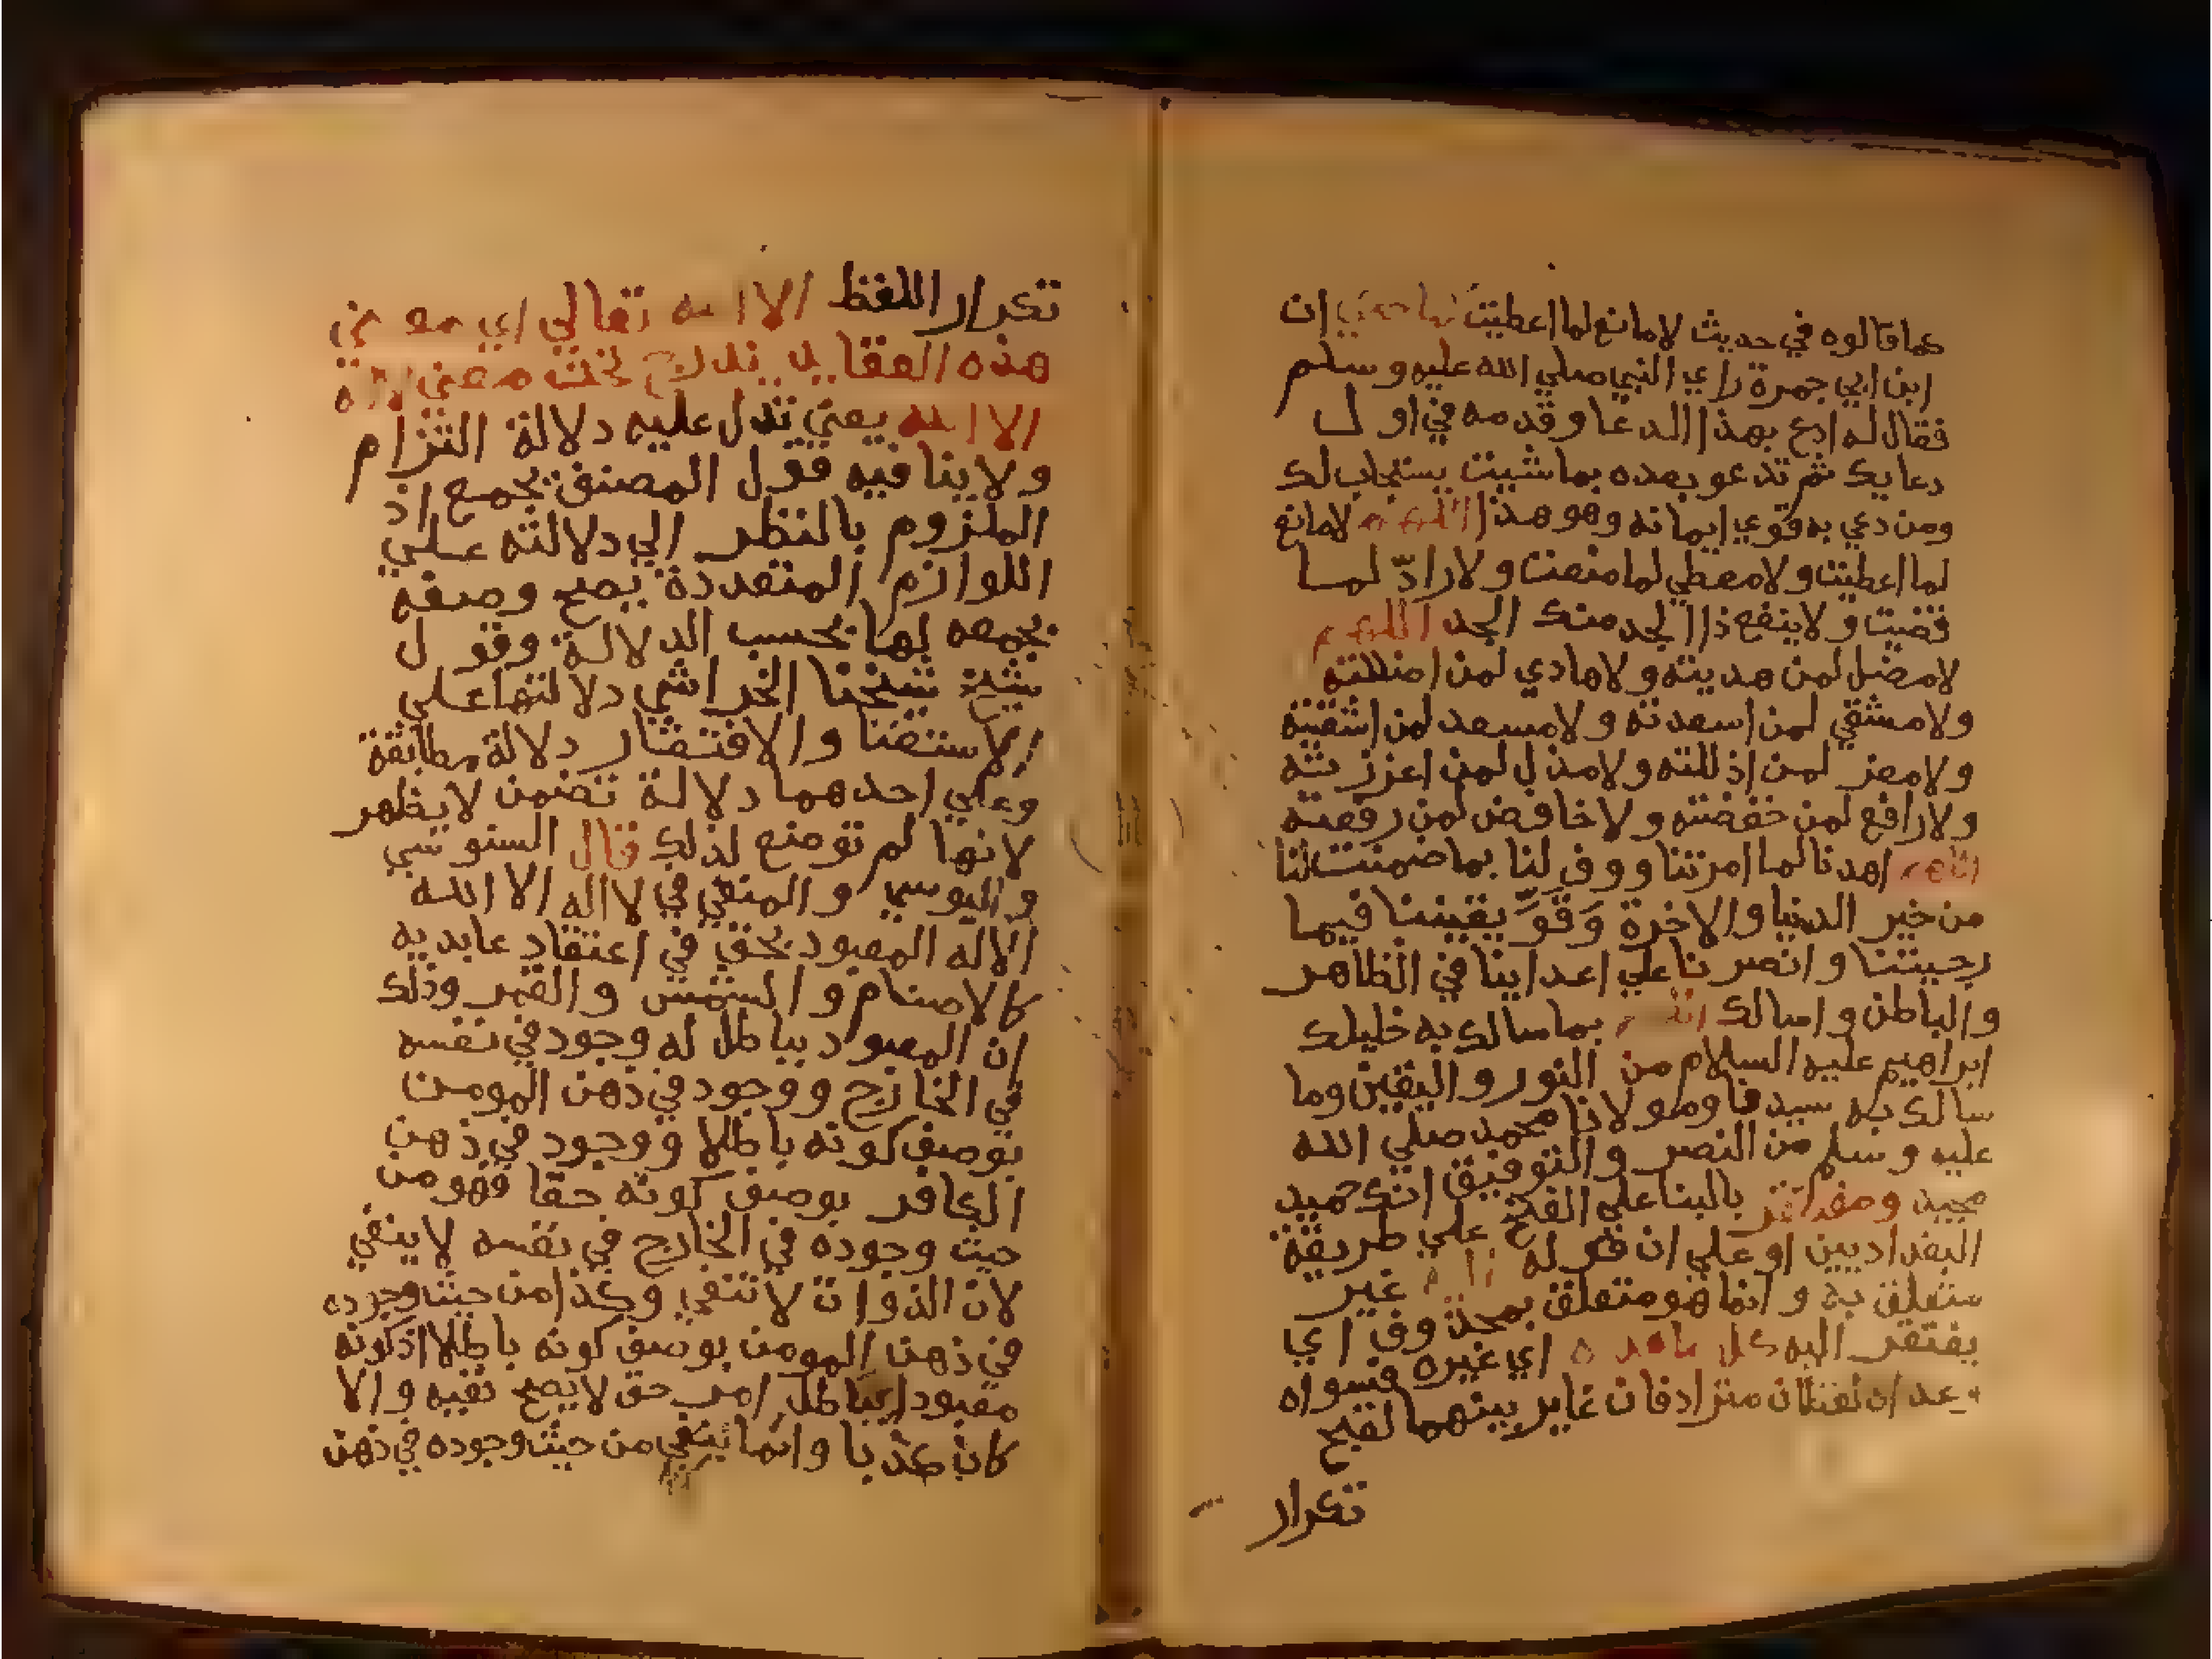 كما قالوه في حديث لا مانع لما اعطيت ان
ابن ابي جمرة راي النبي صلي الله عليه وسلم
فقال له ادع بهذا الدعا وقدمه في اول
دعايك ثم تدعو بعده بما شيت يستجاب لك
ومن دعي به قوي ايمانه وهو هذا اللهم لا مانع
لما اعطيت ولا معطي لما منعت ولا رادّ لما
قضيت ولا ينفع ذا الجد منك الجد اللهم
لا مضل لمن هديته ولا هادي لمن اضللته
ولا مشقي لمن اسعدته ولا مسعد لمن اشقيته
ولا معز لمن اذللته ولا مذل لمن اعززته
ولا رافع لمن خفضته ولا خافض لمن رفعته
اللهم اهدنا لما امرتنا ووف لنا بما ضمنت لنا
من خير الدنيا والاخرة وَقَوِّ يقيننا فيما
رجيتنا وانصرنا علي اعداينا في الظاهر
والباطن واسالك اللهم بما سالك به خليلك
ابراهيم عليه السلام من النور واليقين وما
سالك به سيدنا ومولانا محمد صلي الله
عليه وسلم من النصر والتوفيق انك حميد
مجيد بالبنا علي الفتح علي طريقة
البغداديين او علي ان قوله غير
متعلق به وانما هو متعلق بمحذوف اي
يفتقر اليه كل ما عداه اي غيره فسواه
وعداه لفظان مترادفان غاير بينهما لقبح
تكرار
تكرار اللفظ الا الله تعالي اي
هذه العقايد تندرج تحت معني لا اله
الا الله يعني تدل عليه دلالة التزام
ولا ينافيه قول المصنف بجمع اذ
الملزوم بالنظر الي دلالته علي
اللوازم المتعددة يصح وصفه
بجمعه لها بحسب الدلالة وقول
شيخنا الخراشي دلالتها علي
الاستغنا والافتقار دلالة مطابقة
وعلي احدهما دلالة تضمن لا يظهر
لانها لم توضع لذلك قال السنوسي
واليوسي والمنفي في لا اله الا الله
الاله المعبود بحق في اعتقاد عابديه
كالاصنام والشمس والقمر وذلك
ان المعبود بباطل له وجود في نفسه
في الخارج ووجود في ذهن المومن
بوصف كونه باطلا ووجود في ذهن
الكافر بوصف كونه حقا فهو من
حيث وجوده في الخارج في نفسه لا ينفي
لان الذوات لا تنفي وكذا من حيث وجوده
في ذهن المومن بوصف كونه باطلا اذ كونه
معبودا بباطل امر حق لا يصح نفيه والا
كان كذبا وانما ينفي من حيث وجوده في ذهن